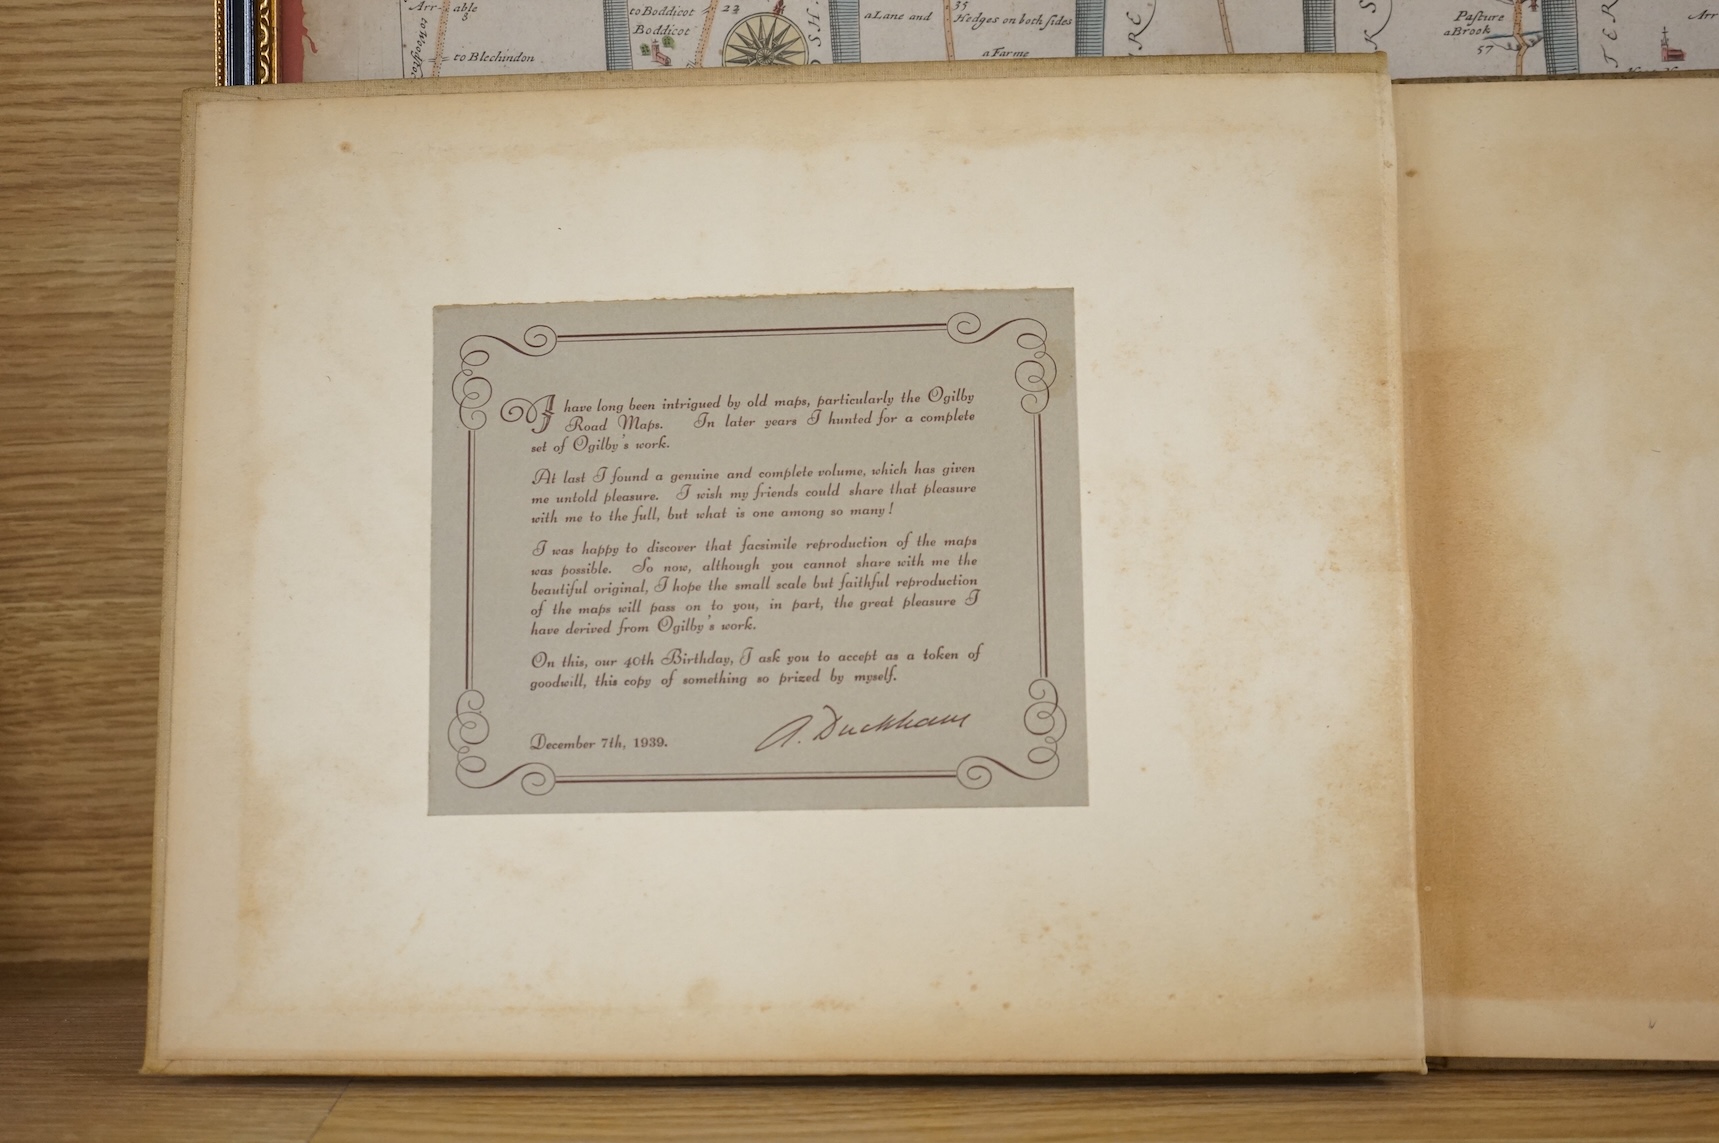 Arr- able
3
to Boddicot
Boddicot
23
to Blechindon
SH
a Lane and
35
Hedges on both sides
a Farme
RE
K S
Pasture
a Brook
57
TER
Arr
I have long been intrigued by old maps, particularly the Ogilby
Road Maps. In later years I hunted for a complete
set of Ogilby's work.
At last I found a genuine and complete volume, which has given
me untold pleasure. I wish my friends could share that pleasure
with me to the full, but what is one among so many!
I was happy to discover that facsimile reproduction of the maps
was possible. So now, although you cannot share with me the
beautiful original, I hope the small scale but faithful reproduction
of the maps will pass on to you, in part, the great pleasure I
have derived from Ogilby's work.
On this, our 40th Birthday, I ask you to accept as a token of
goodwill, this copy of something so prized by myself.
A. Duckham
December 7th, 1939.